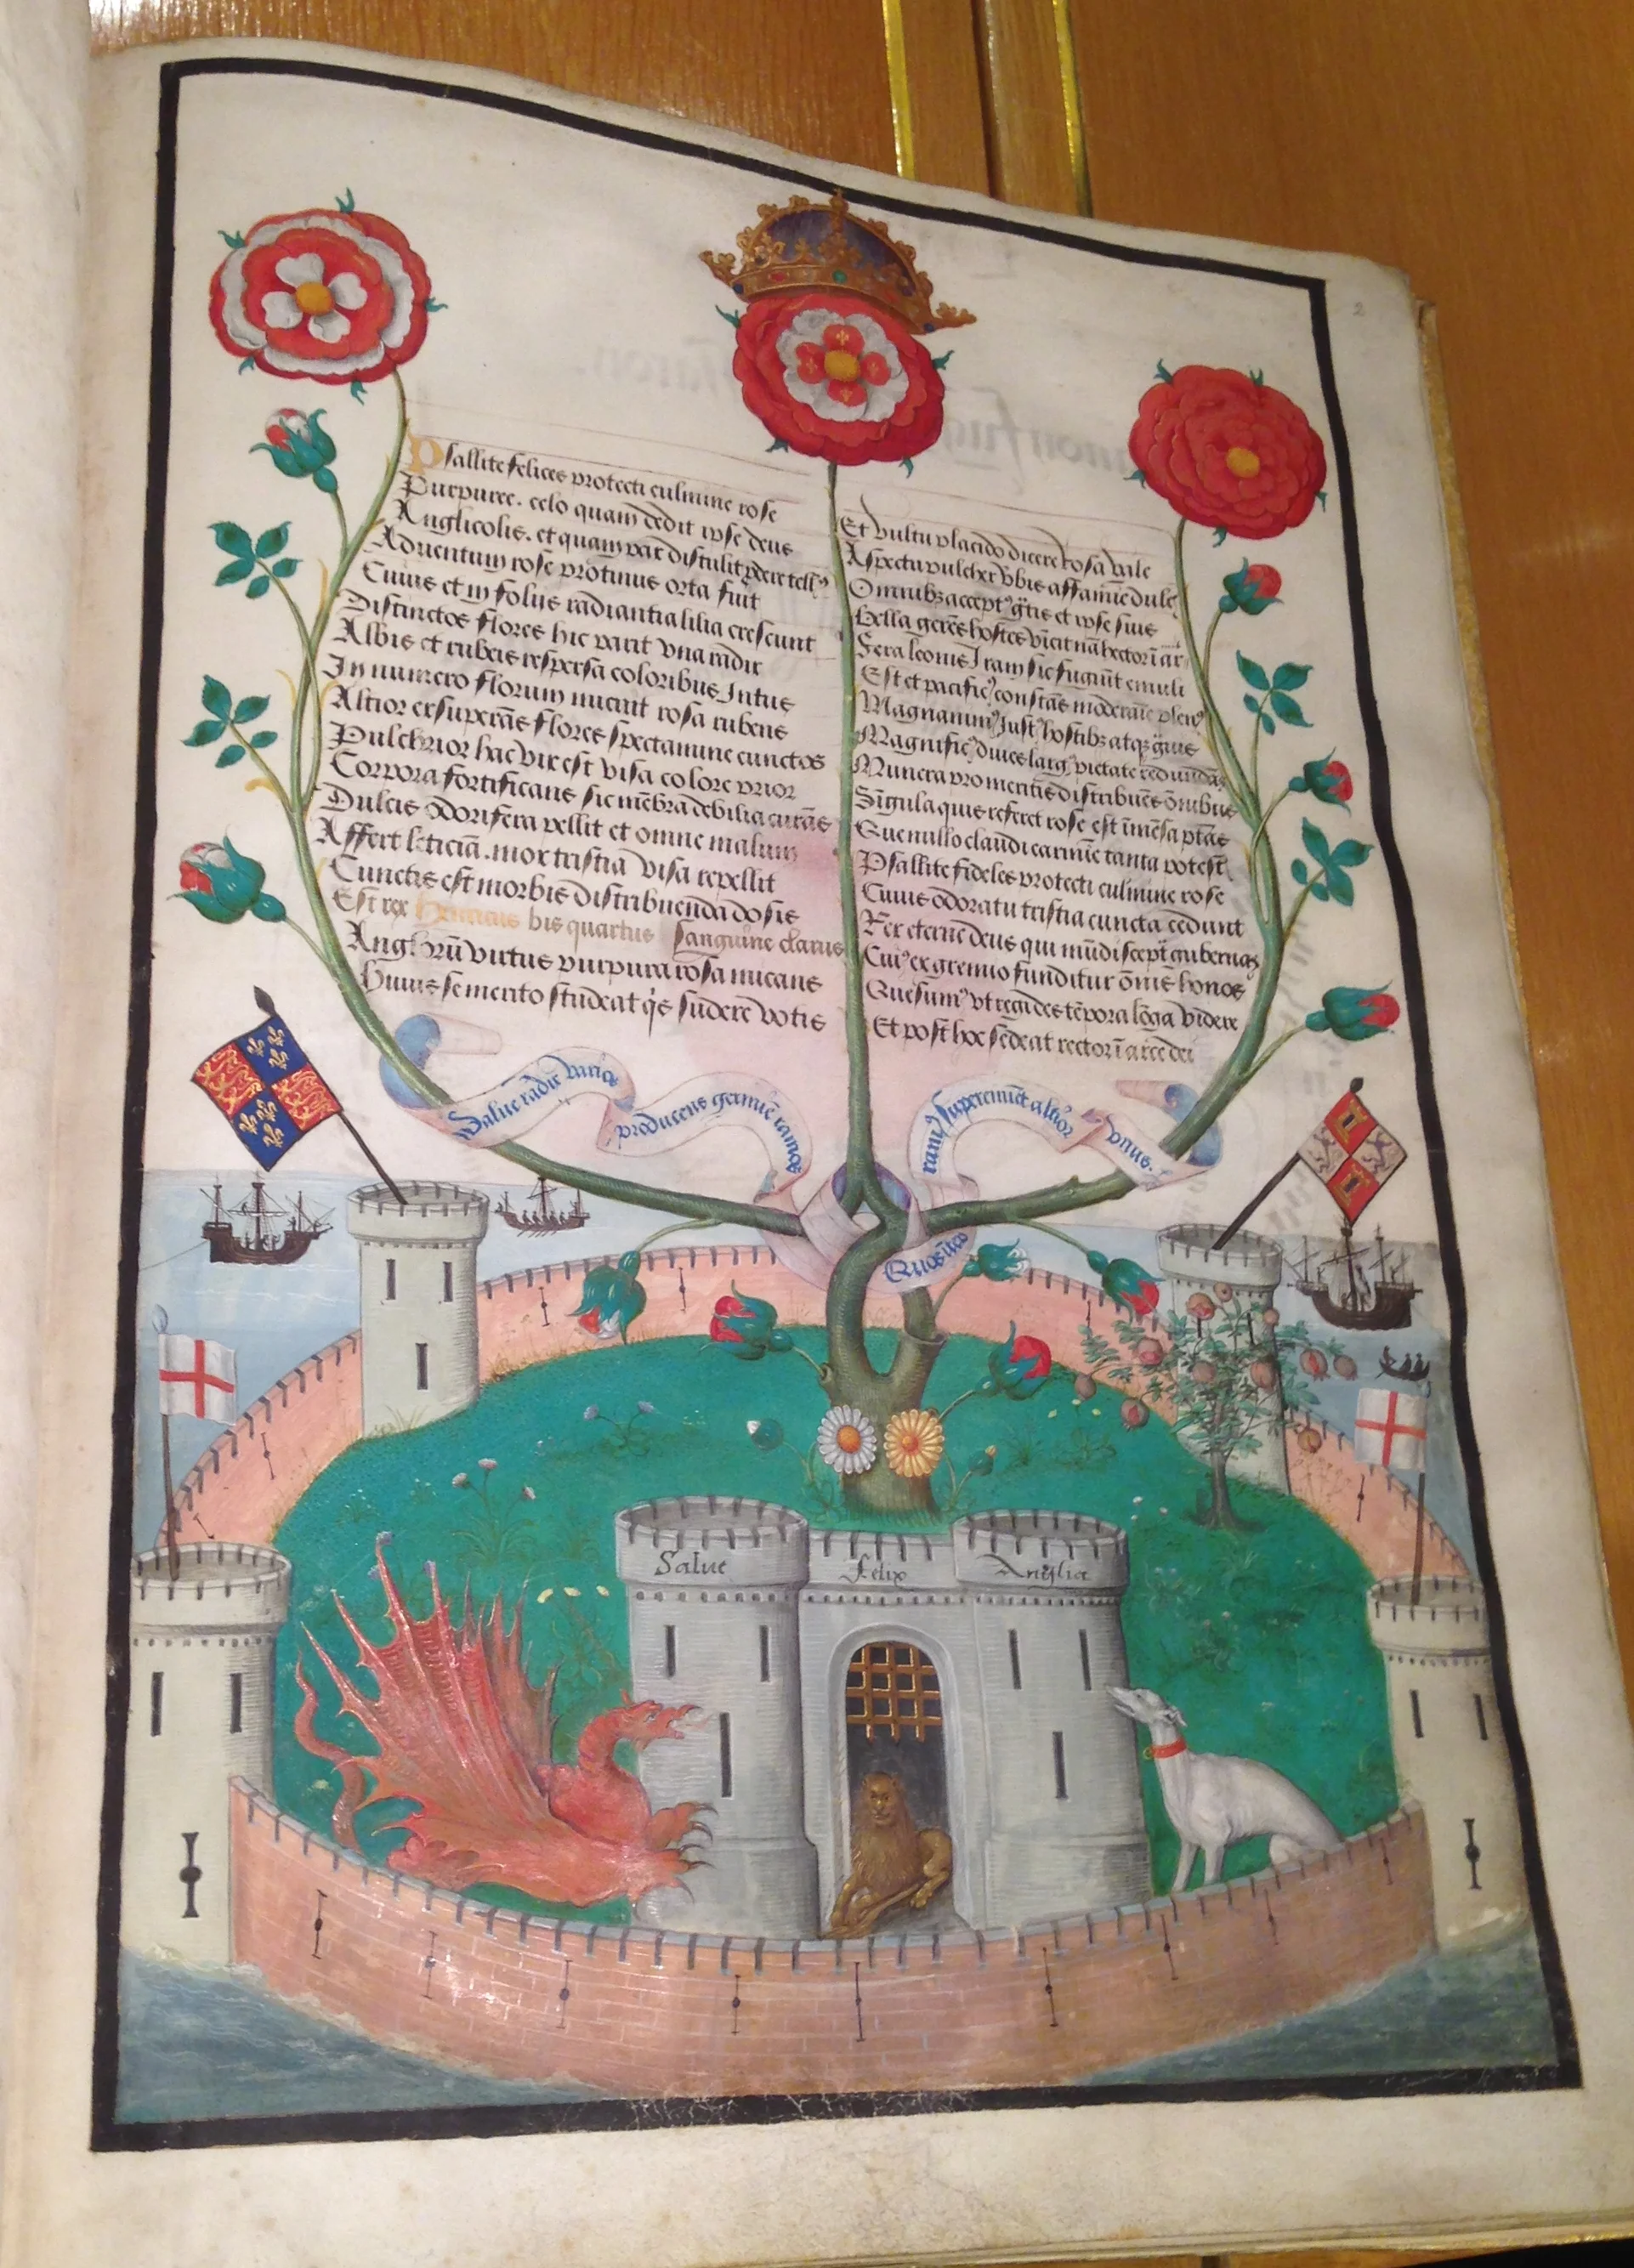 Psallite felices protecti culmine rose
Purpuree. celo quam dedit ipse deus
Anglicolis. et quam pax distulit edere tell9
Aduentum rose protinus orta fuit
Cuius et in folijs radiantia lilia crescunt
Distinctos flores hic parit vna radix
Albis et rubeis respersa coloribus Intus
In numero florum micuit rosa rubens
Altior exsuperãs flores spectamine cunctos
Pulchrior hac vix est visa colore prior
Corpora fortificans sic mẽbra debilia curãs
Dulcis odorifera pellit et omne malum
Affert leticiã. mox tristia visa repellit
Cunctis est morbis distribuenda dosis
Est rex Henricus bis quartus sanguine clarus
Anglorũ virtus purpura rosa micans
Huius se merito studeat q's fundere votis
Et vultu placido dicere rosa vale
Aspectu pulcher vbis affamine dulc
Omnib3 accept9 gtis et ipse suis
Bella gerẽs hostes vicit nã hector ĩ ar
Fera leonis Iram sic fugiũt emuli
Est et pacific9 constãs moderamĩe plen9
Magnanim9 Just9 hostib3 atq3 guis
Magnific9 diues larg9 pietate redundãs
Munera pro meritis distribuẽs õnibus
Singula quis referet rose est ĩmẽsa ptãs
Que nullo claudi carmĩe tanta potest
Psallite fideles protecti culmine rose
Cuius odoratu tristia cuncta cedunt
Rex eterne deus qui mũdi sceptra gubernas
Cui9 ex gremio funditur õnis honos
Quesum9 vt regi des tẽpora lõga videre
Et post hoc sedeat rector ĩ arce dei
Salue radix varios
producens germĩe ramos
Quos ĩter
ram9 supereminet altior
vnus.
Salue felix Anglia
2